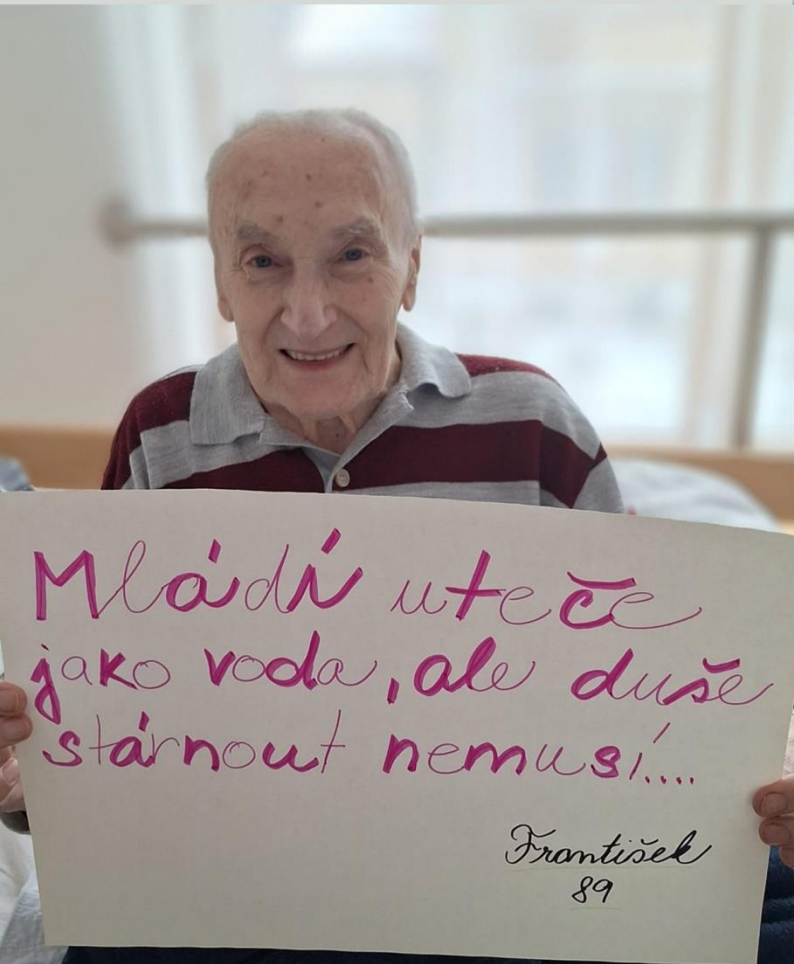 Mládí uteče
jako voda, ale duše
stárnout nemusí....
František
89